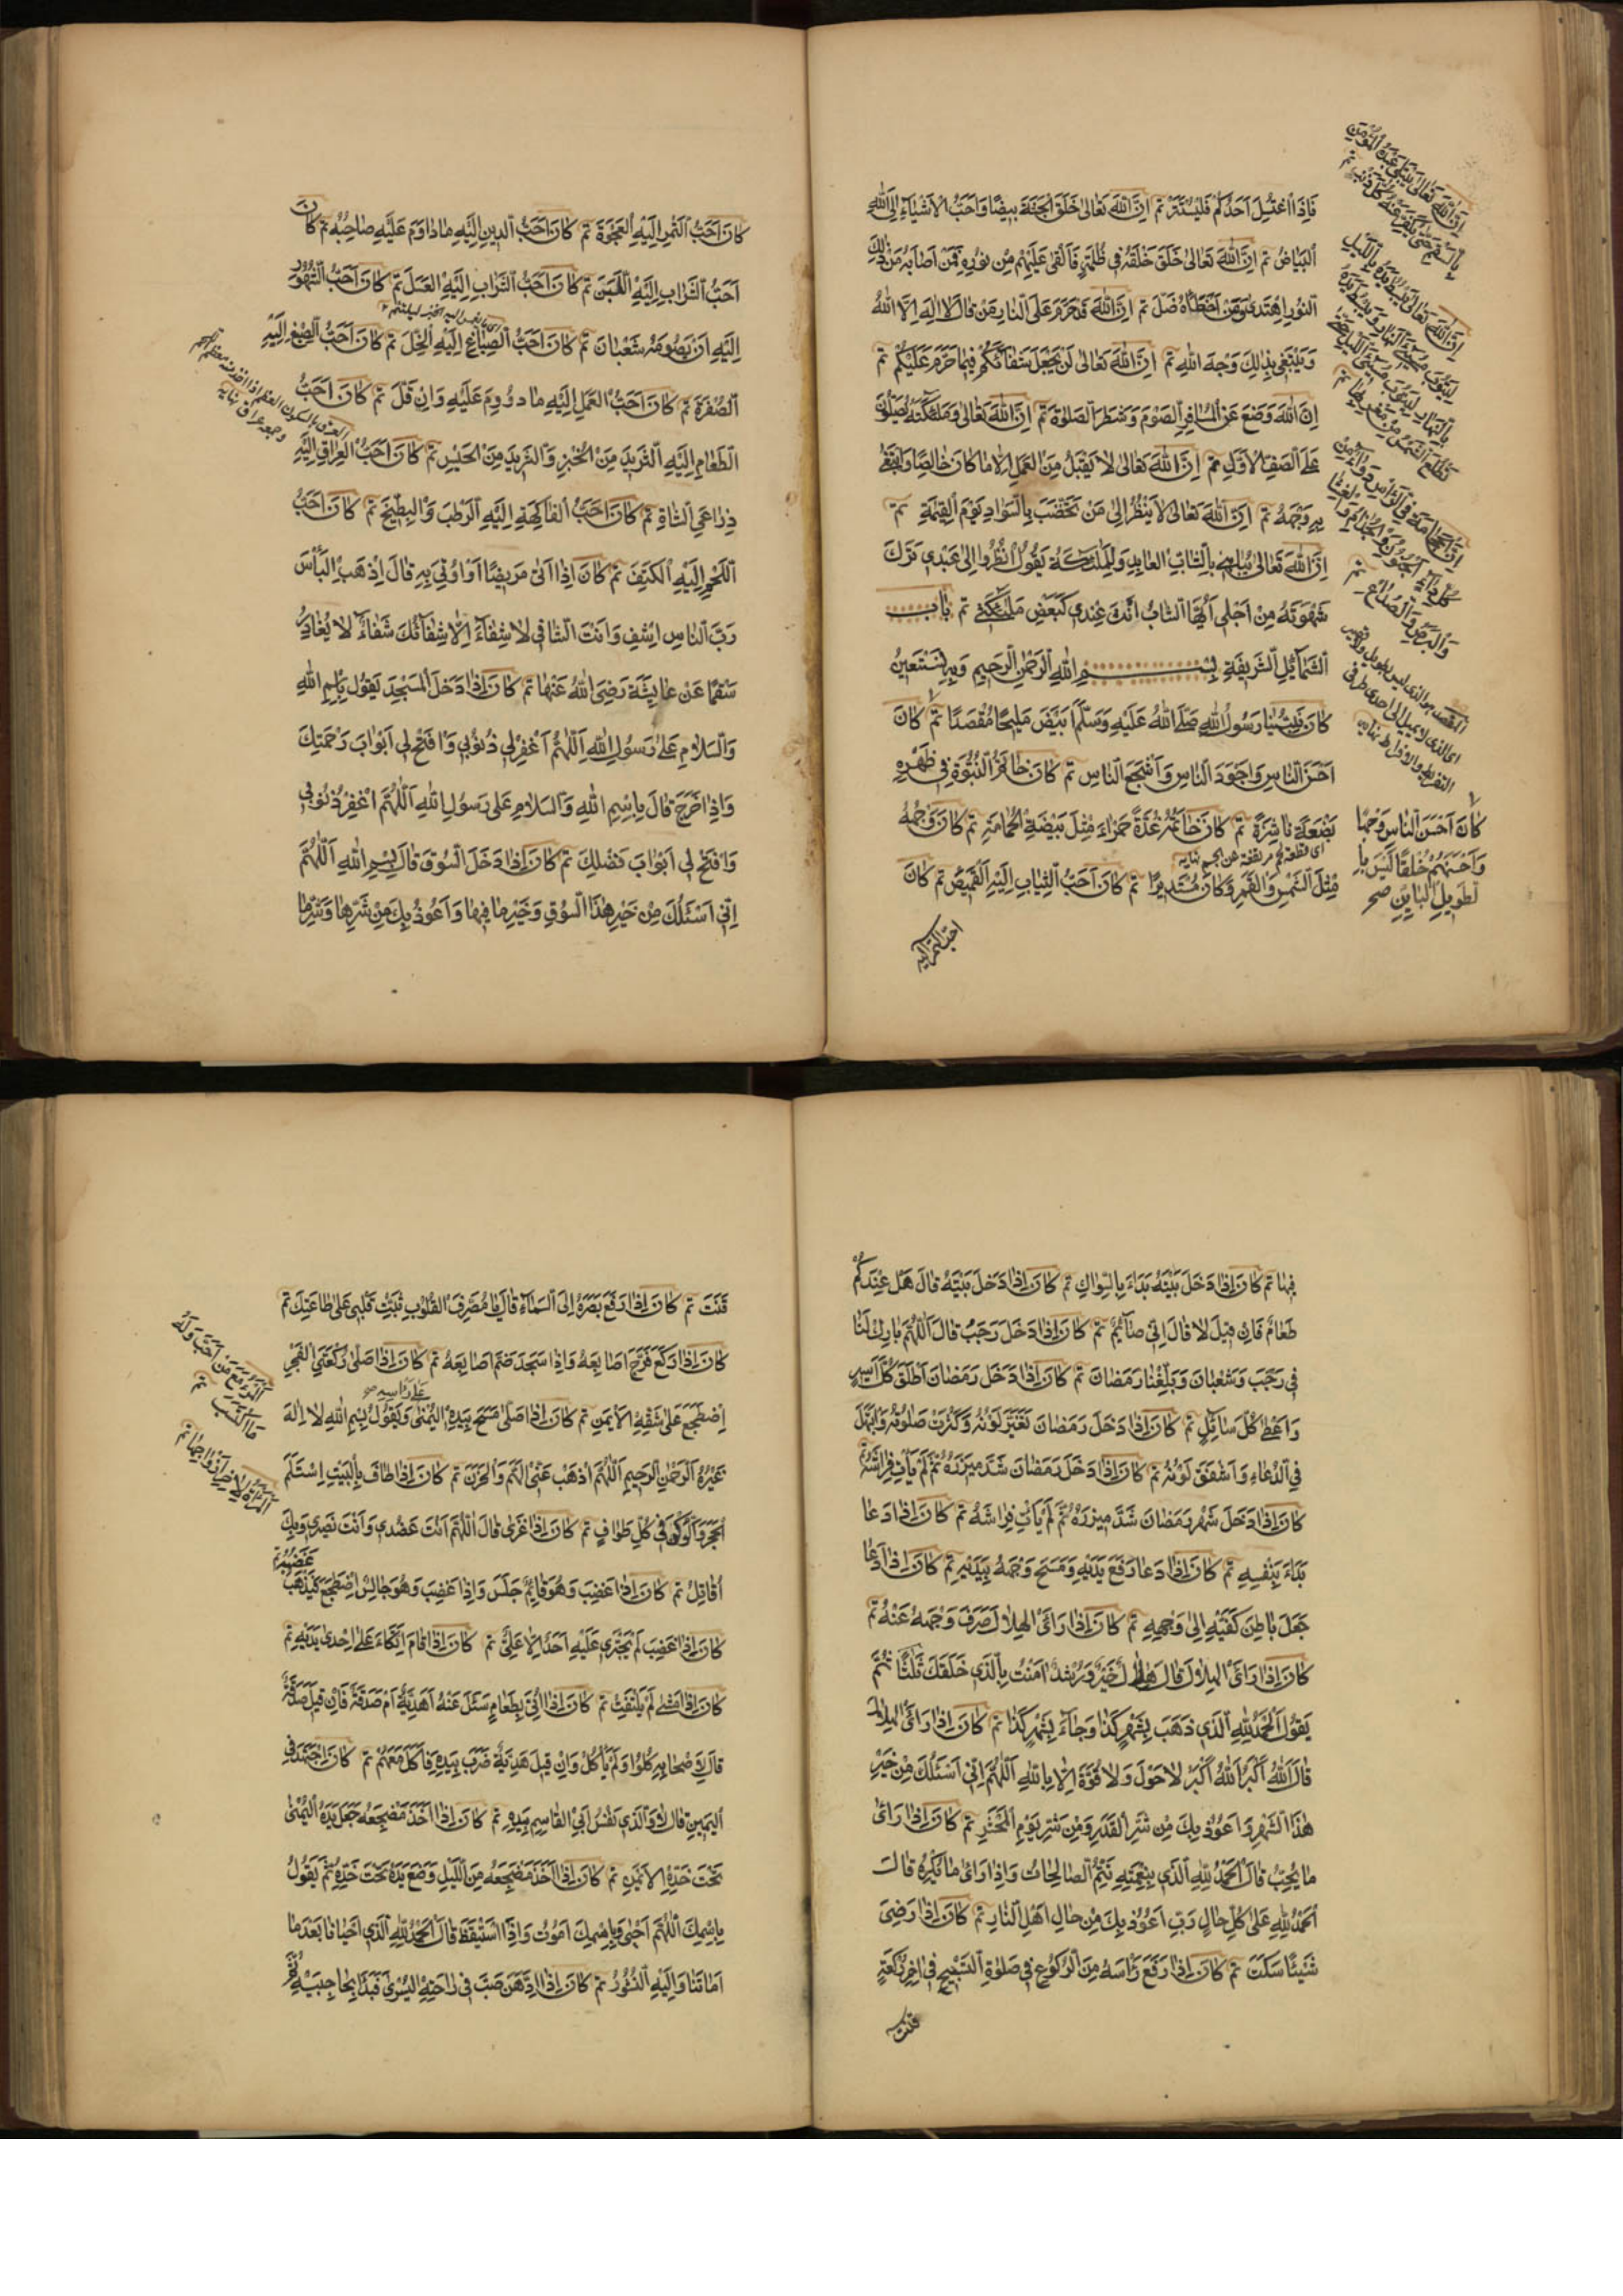 فَاِذَا اغْتَسَلَ اَحَدُكُمْ فَلْيَسْتَتِرْ تم اِنَّ اللهَ تَعَالٰى خَلَقَ الْجَنَّةَ بَيْضَا وَاَحَبُّ الْاَشْيَاءِ اِلَى اللهِ
الْبَيَاضُ تم اِنَّ اللهَ تَعَالٰى خَلَقَ خَلْقَهُ فِى ظُلْمَةٍ فَاَلْقٰى عَلَيْهِمْ مِنْ نُورِهِ فَمَنْ اَصَابَهُ مِنْ ذٰلِكَ
النُّورِ اِهْتَدٰى وَمَنْ اَخْطَأَهُ ضَلَّ تم اِنَّ اللهَ قَدْ حَرَّمَ عَلَى النَّارِ مَنْ قَالَ لَا اِلٰهَ اِلَّا اللهُ
وَيَبْتَغِى بِذٰلِكَ وَجْهَ اللهِ تم اِنَّ اللهَ تَعَالٰى لَنْ يَجْعَلَ شِفَائَكُمْ فِيمَا حَرَّمَ عَلَيْكُمْ تم
اِنَّ اللهَ وَضَعَ عَنِ الْمُسَافِرِ الصَّوْمَ وَشَطْرَ الصَّلٰوةِ تم اِنَّ اللهَ تَعَالٰى وَمَلٰئِكَتَهُ يُصَلُّونَ
عَلَى الصَّفِّ الْاَوَّلِ تم اِنَّ اللهَ تَعَالٰى لَا يَقْبَلُ مِنَ الْعَمَلِ اِلَّا مَا كَانَ خَالِصًا وَابْتُغِىَ
بِهِ وَجْهُهُ تم اِنَّ اللهَ تَعَالٰى لَا يَنْظُرُ اِلٰى مَنْ يَخْضِبُ بِالسَّوَادِ يَوْمَ الْقِيٰمَةِ تم
اِنَّ اللهَ تَعَالٰى يُبَاهِى بِالشَّابِّ الْعَابِدِ وَلِمَلٰئِكَتِهِ يَقُولُ انْظُرُوا اِلٰى عَبْدِى تَرَكَ
شَهْوَتَهُ مِنْ اَجْلِى اَيُّهَا الشَّابُّ اَنْتَ عِنْدِى كَبَعْضِ مَلٰئِكَتِى تم بَاب
الشَّمَائِلِ الشَّرِيفَةِ بِسْمِ اللهِ الرَّحْمٰنِ الرَّحِيمِ وَبِهِ نَسْتَعِينُ
كَانَ نَبِيُّنَا رَسُولُ اللهِ صَلَّى اللهُ عَلَيْهِ وَسَلَّمَ اَبْيَضَ مَلِيحًا مُقَصَّدًا تم كَانَ
اَحْسَنَ النَّاسِ وَاَجْوَدَ النَّاسِ وَاَشْجَعَ النَّاسِ تم كَانَ خَاتَمُ النُّبُوَّةِ فِى ظَهْرِهِ
بَضْعَةً نَاشِزَةً تم كَانَ خَاتَمُهُ غُدَّةً حَمْرَاءَ مِثْلَ بَيْضَةِ الْحَمَامَةِ تم كَانَ وَجْهُهُ
اى قطعة لحم مرتفعة عن الجسم نهاية
مِثْلَ الشَّمْسِ وَالْقَمَرِ وَكَانَ مُسْتَدِيرًا تم كَانَ اَحَبُّ الثِّيَابِ اِلَيْهِ الْقَمِيصُ تم كَانَ
احب التمر اليه
اِنَّ اللهَ تَعَالٰى يَبْتَلِى عَبْدَهُ الْمُؤْمِنَ
بِالسَّقَمِ حَتّٰى يُكَفِّرَ عَنْهُ كُلَّ ذَنْبٍ تم
اِنَّ اللهَ تَعَالٰى يَبْسُطُ يَدَهُ بِاللَّيْلِ
لِيَتُوبَ مُسِىءُ النَّهَارِ وَيَبْسُطُ يَدَهُ
بِالنَّهَارِ لِيَتُوبَ مُسِىءُ اللَّيْلِ حَتّٰى
تَطْلُعَ الشَّمْسُ مِنْ مَغْرِبِهَا تم
اِنَّ الْحِجَامَةَ فِى الرَّأْسِ دَوَاءٌ مِنْ
كُلِّ دَاءٍ الْجُنُونِ وَالْجُذَامِ وَالْعَشَا
وَالْبَرَصِ وَالصُّدَاعِ تم
المقصد هو الذى ليس بطويل ولا قصير
اى الذى لا يميل الى احدى طرفى
التفريط والافراط نهاية
كَانَ اَحْسَنَ النَّاسِ وَجْهًا
وَاَحْسَنَهُمْ خُلُقًا لَيْسَ بِا
لطَّوِيلِ الْبَايِنِ صح
كَانَ اَحَبُّ التَّمْرِ اِلَيْهِ الْعَجْوَةَ تم كَانَ اَحَبُّ الدِّينِ اِلَيْهِ مَا دَاوَمَ عَلَيْهِ صَاحِبُهُ تم كَانَ
اَحَبُّ الشَّرَابِ اِلَيْهِ اللَّبَنَ تم كَانَ اَحَبُّ الشَّرَابِ اِلَيْهِ الْعَسَلَ تم كَانَ اَحَبُّ الشُّهُورِ
اِلَيْهِ اَنْ يَصُومَهُ شَعْبَانَ تم كَانَ اَحَبُّ الصِّبَاغِ اِلَيْهِ الْخَلَّ تم كَانَ اَحَبُّ الصِّبْغِ اِلَيْهِ
الصُّفْرَةَ تم كَانَ اَحَبُّ الْعَمَلِ اِلَيْهِ مَا دُووِمَ عَلَيْهِ وَاِنْ قَلَّ تم كَانَ اَحَبُّ
الطَّعَامِ اِلَيْهِ الثَّرِيدَ مِنَ الْخُبْزِ وَالثَّرِيدَ مِنَ الْحَيْسِ تم كَانَ اَحَبُّ الْعُرَاقِ اِلَيْهِ
ذِرَاعَىِ الشَّاةِ تم كَانَ اَحَبُّ الْفَاكِهَةِ اِلَيْهِ الرُّطَبَ وَالْبِطِّيخَ تم كَانَ اَحَبُّ
اللَّحْمِ اِلَيْهِ الْكَتِفَ تم كَانَ اِذَا اَتٰى مَرِيضًا اَوْ اُوتِىَ بِهِ قَالَ اِذْهَبِ الْبَأْسَ
رَبَّ النَّاسِ اِشْفِ وَاَنْتَ الشَّافِى لَا شِفَاءَ اِلَّا شِفَائُكَ شِفَاءً لَا يُغَادِرُ
سَقَمًا عَنْ عَايِشَةَ رَضِىَ اللهُ عَنْهَا تم كَانَ اِذَا دَخَلَ الْمَسْجِدَ يَقُولُ بِاسْمِ اللهِ
وَالسَّلَامُ عَلٰى رَسُولِ اللهِ اَللّٰهُمَّ اغْفِرْ لِى ذُنُوبِى وَافْتَحْ لِى اَبْوَابَ رَحْمَتِكَ
وَاِذَا خَرَجَ قَالَ بِاسْمِ اللهِ وَالسَّلَامُ عَلٰى رَسُولِ اللهِ اَللّٰهُمَّ اغْفِرْ ذُنُوبِى
وَافْتَحْ لِى اَبْوَابَ فَضْلِكَ تم كَانَ اِذَا دَخَلَ السُّوقَ قَالَ بِسْمِ اللهِ اَللّٰهُمَّ
اِنِّى اَسْئَلُكَ مِنْ خَيْرِ هٰذَا السُّوقِ وَخَيْرِ مَا فِيهَا وَاَعُوذُ بِكَ مِنْ شَرِّهَا وَشَرِّ مَا
فِيهَا تم كَانَ اِذَا دَخَلَ بَيْتَهُ بَدَاءَ بِالسِّوَاكِ تم كَانَ اِذَا دَخَلَ بَيْتَهُ قَالَ هَلْ عِنْدَكُمْ
طَعَامٌ فَاِنْ قِيلَ لَا قَالَ اِنِّى صَائِمٌ تم كَانَ اِذَا دَخَلَ رَجَبُ قَالَ اَللّٰهُمَّ بَارِكْ لَنَا
فِى رَجَبَ وَشَعْبَانَ وَبَلِّغْنَا رَمَضَانَ تم كَانَ اِذَا دَخَلَ رَمَضَانَ اَطْلَقَ كُلَّ اَسِيرٍ
وَاَعْطٰى كُلَّ سَائِلٍ تم كَانَ اِذَا دَخَلَ رَمَضَانَ تَغَيَّرَ لَوْنُهُ وَكَثُرَتْ صَلٰوتُهُ وَابْتَهَلَ
فِى الدُّعَاءِ وَاَشْفَقَ لَوْنُهُ تم كَانَ اِذَا دَخَلَ رَمَضَانَ شَدَّ مِيزَرَهُ ثُمَّ لَمْ يَأْتِ فِرَاشَهُ تم
كَانَ اِذَا دَخَلَ شَهْرُ رَمَضَانَ شَدَّ مِيزَرَهُ ثُمَّ لَمْ يَأْتِ فِرَاشَهُ تم كَانَ اِذَا دَعَا
بَدَاءَ بِنَفْسِهِ تم كَانَ اِذَا دَعَا رَفَعَ يَدَيْهِ وَمَسَحَ وَجْهَهُ بِيَدَيْهِ تم كَانَ اِذَا دَعَا
جَعَلَ بَاطِنَ كَفَّيْهِ اِلٰى وَجْهِهِ تم كَانَ اِذَا رَاَئَ الْهِلَالَ صَرَفَ وَجْهَهُ عَنْهُ تم
كَانَ اِذَا رَاَئَ الْهِلَالَ قَالَ هِلَالُ خَيْرٍ وَرُشْدٍ اٰمَنْتُ بِالَّذِى خَلَقَكَ ثَلٰثًا ثُمَّ
يَقُولُ اَلْحَمْدُ لِلّٰهِ الَّذِى ذَهَبَ بِشَهْرِ كَذَا وَجَاءَ بِشَهْرِ كَذَا تم كَانَ اِذَا رَاَئَ الْهِلَالَ
قَالَ اَللهُ اَكْبَرُ اَللهُ اَكْبَرُ لَا حَوْلَ وَلَا قُوَّةَ اِلَّا بِاللهِ اَللّٰهُمَّ اِنِّى اَسْئَلُكَ مِنْ خَيْرِ
هٰذَا الشَّهْرِ وَاَعُوذُ بِكَ مِنْ شَرِّ الْقَدَرِ وَمِنْ شَرِّ يَوْمِ الْمَحْشَرِ تم كَانَ اِذَا رَاَئَ
مَا يُحِبُّ قَالَ اَلْحَمْدُ لِلّٰهِ الَّذِى بِنِعْمَتِهِ تَتِمُّ الصَّالِحَاتُ وَاِذَا رَاَئَ مَا يَكْرَهُ قَالَ
اَلْحَمْدُ لِلّٰهِ عَلٰى كُلِّ حَالٍ رَبِّ اَعُوذُ بِكَ مِنْ حَالِ اَهْلِ النَّارِ تم كَانَ اِذَا رَضِىَ
شَيْئًا سَكَتَ تم كَانَ اِذَا رَفَعَ رَأْسَهُ مِنَ الرُّكُوعِ فِى صَلٰوةِ الصُّبْحِ فِى اٰخِرِ رَكْعَةٍ
قنت
قَنَتَ تم كَانَ اِذَا رَفَعَ بَصَرَهُ اِلَى السَّمَاءِ قَالَ يَا مُصَرِّفَ الْقُلُوبِ ثَبِّتْ قَلْبِى عَلٰى طَاعَتِكَ تم
كَانَ اِذَا رَكَعَ فَرَّجَ اَصَابِعَهُ وَاِذَا سَجَدَ ضَمَّ اَصَابِعَهُ تم كَانَ اِذَا صَلّٰى رَكْعَتَىِ الْفَجْرِ
عَلٰى رَأْسِهِ صح
اِضْطَجَعَ عَلٰى شِقِّهِ الْاَيْمَنِ تم كَانَ اِذَا صَلّٰى مَسَحَ بِيَدِهِ الْيُمْنٰى وَيَقُولُ بِسْمِ اللهِ لَا اِلٰهَ
غَيْرُهُ الرَّحْمٰنِ الرَّحِيمِ اَللّٰهُمَّ اذْهَبْ عَنِّى الْهَمَّ وَالْحَزَنَ تم كَانَ اِذَا طَافَ بِالْبَيْتِ اِسْتَلَمَ
الْحَجَرَ وَالرُّكْنَ فِى كُلِّ طَوَافٍ تم كَانَ اِذَا غَزٰى قَالَ اَللّٰهُمَّ اَنْتَ عَضُدِى وَاَنْتَ نَصِيرِى وَبِكَ
اُقَاتِلُ تم كَانَ اِذَا غَضِبَ وَهُوَ قَائِمٌ جَلَسَ وَاِذَا غَضِبَ وَهُوَ جَالِسٌ اِضْطَجَعَ فَيَذْهَبُ غَضَبُهُ تم
كَانَ اِذَا غَضِبَ لَمْ يَجْتَرِى عَلَيْهِ اَحَدٌ اِلَّا عَلِىٌّ تم كَانَ اِذَا قَامَ اِتَّكَاءَ عَلٰى اِحْدٰى يَدَيْهِ تم
كَانَ اِذَا مَشٰى لَمْ يَلْتَفِتْ تم كَانَ اِذَا اُتِىَ بِطَعَامٍ سَئَلَ عَنْهُ اَهَدِيَّةٌ اَمْ صَدَقَةٌ فَاِنْ قِيلَ صَدَقَةٌ
قَالَ لِاَصْحَابِهِ كُلُوا وَلَمْ يَأْكُلْ وَاِنْ قِيلَ هَدِيَّةٌ ضَرَبَ بِيَدِهِ فَاَكَلَ مَعَهُمْ تم كَانَ اِذَا اجْتَهَدَ فِى
الْيَمِينِ قَالَ لَا وَالَّذِى نَفْسُ اَبِى الْقَاسِمِ بِيَدِهِ تم كَانَ اِذَا اَخَذَ مَضْجَعَهُ جَعَلَ يَدَهُ الْيُمْنٰى
تَحْتَ خَدِّهِ الْاَيْمَنِ تم كَانَ اِذَا اَخَذَ مَضْجَعَهُ مِنَ اللَّيْلِ وَضَعَ يَدَهُ تَحْتَ خَدِّهِ ثُمَّ يَقُولُ
بِاسْمِكَ اَللّٰهُمَّ اَحْيٰى وَبِاسْمِكَ اَمُوتُ وَاِذَا اسْتَيْقَظَ قَالَ اَلْحَمْدُ لِلّٰهِ الَّذِى اَحْيَانَا بَعْدَ مَا
اَمَاتَنَا وَاِلَيْهِ النُّشُورُ تم كَانَ اِذَا ادَّهَنَ صَبَّ فِى رَاحَتِهِ الْيُسْرٰى فَبَدَأَ بِحَاجِبَيْهِ ثُمَّ
اَلْمَرْءُ مَعَ مَنْ اَحَبَّ وَلَهُ
مَا اكْتَسَبَ تم
اَلْمَرْأَةُ لِاٰخِرِ اَزْوَاجِهَا تم